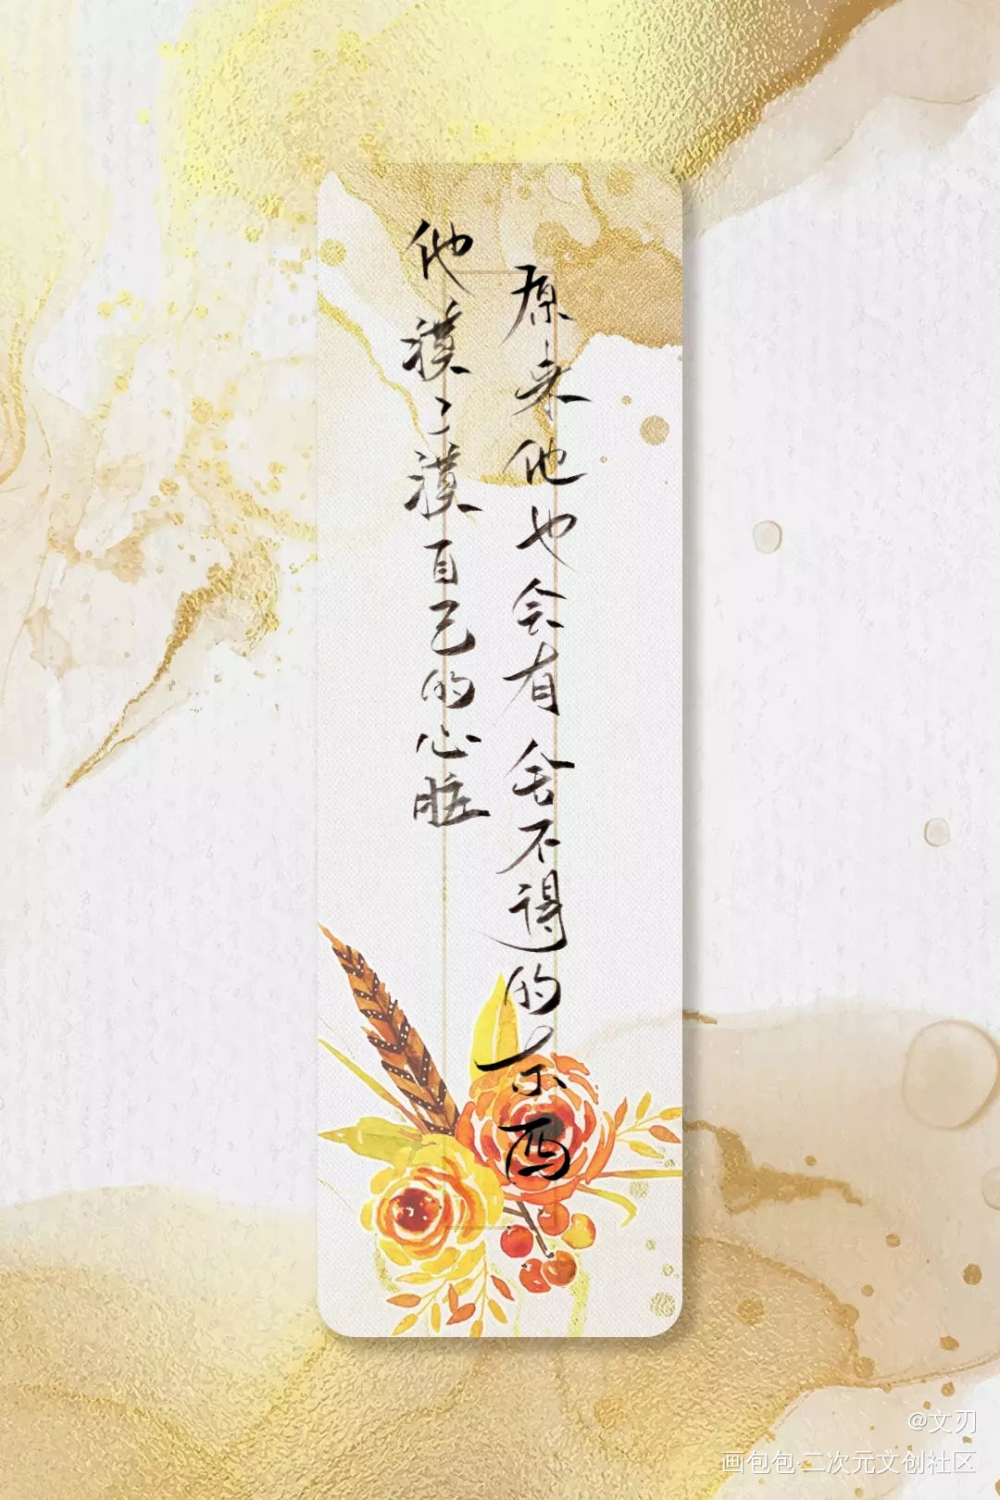 原来他也会有舍不得的东西
他摸了摸自己的心脏
@文刃
画包包·二次元文创社区